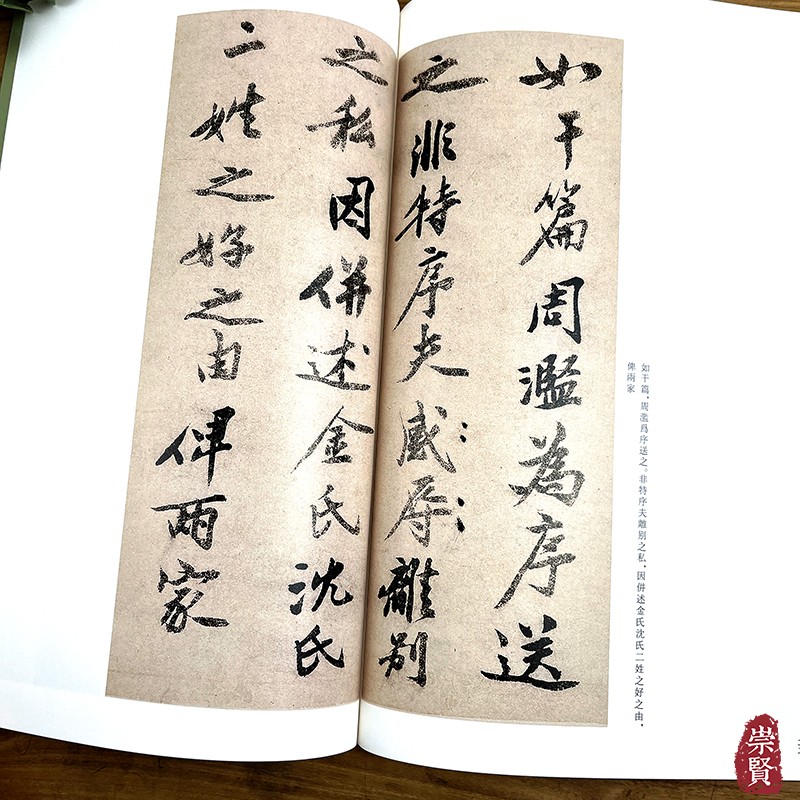 如干篇周濫為序送
之非特序夫感辱離别
之私因併述金氏沈氏
二姓之好之由俾两家
如干篇，周濫爲序送之。非特序夫離別之私，因併述金氏沈氏二姓之好之由，
俾兩家
崇賢